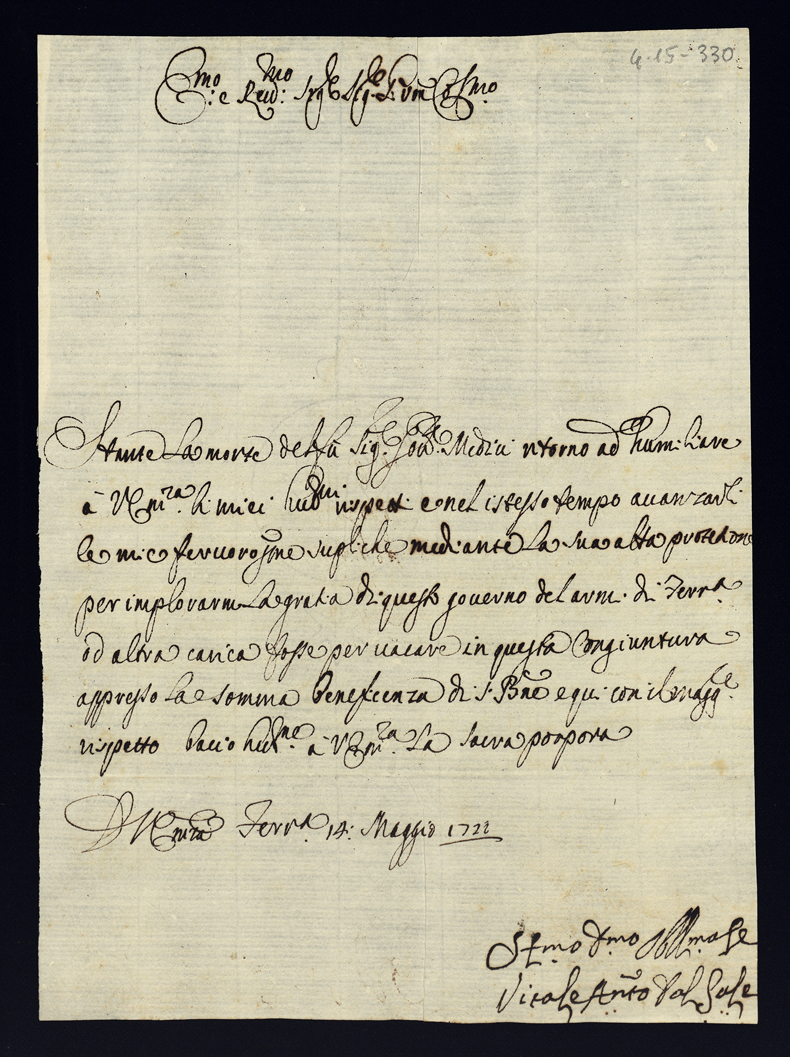 4-15-330
Emo: e Revd:mo Sigre Sigre P:rõn Colmo
Stante la morte del fù Sigr. Medici ritorno ad humiliare
à V Emza. li miei humi rispetti e nel istesso tempo avanzarli
le mie fervorosme supliche mediante la sua alta protetione
per implorarmi la gratia di questo governo del armi. di Ferra
od altra carica fosse per vacare in questa Congiuntura
appresso la somma Beneficenza di s. Bne e qui con il maggre.
rispetto bacio hume. à V Emza. la sacra porpora
D V Emza Ferra 14: Maggio 1722
Vitale Anto Dal Sale